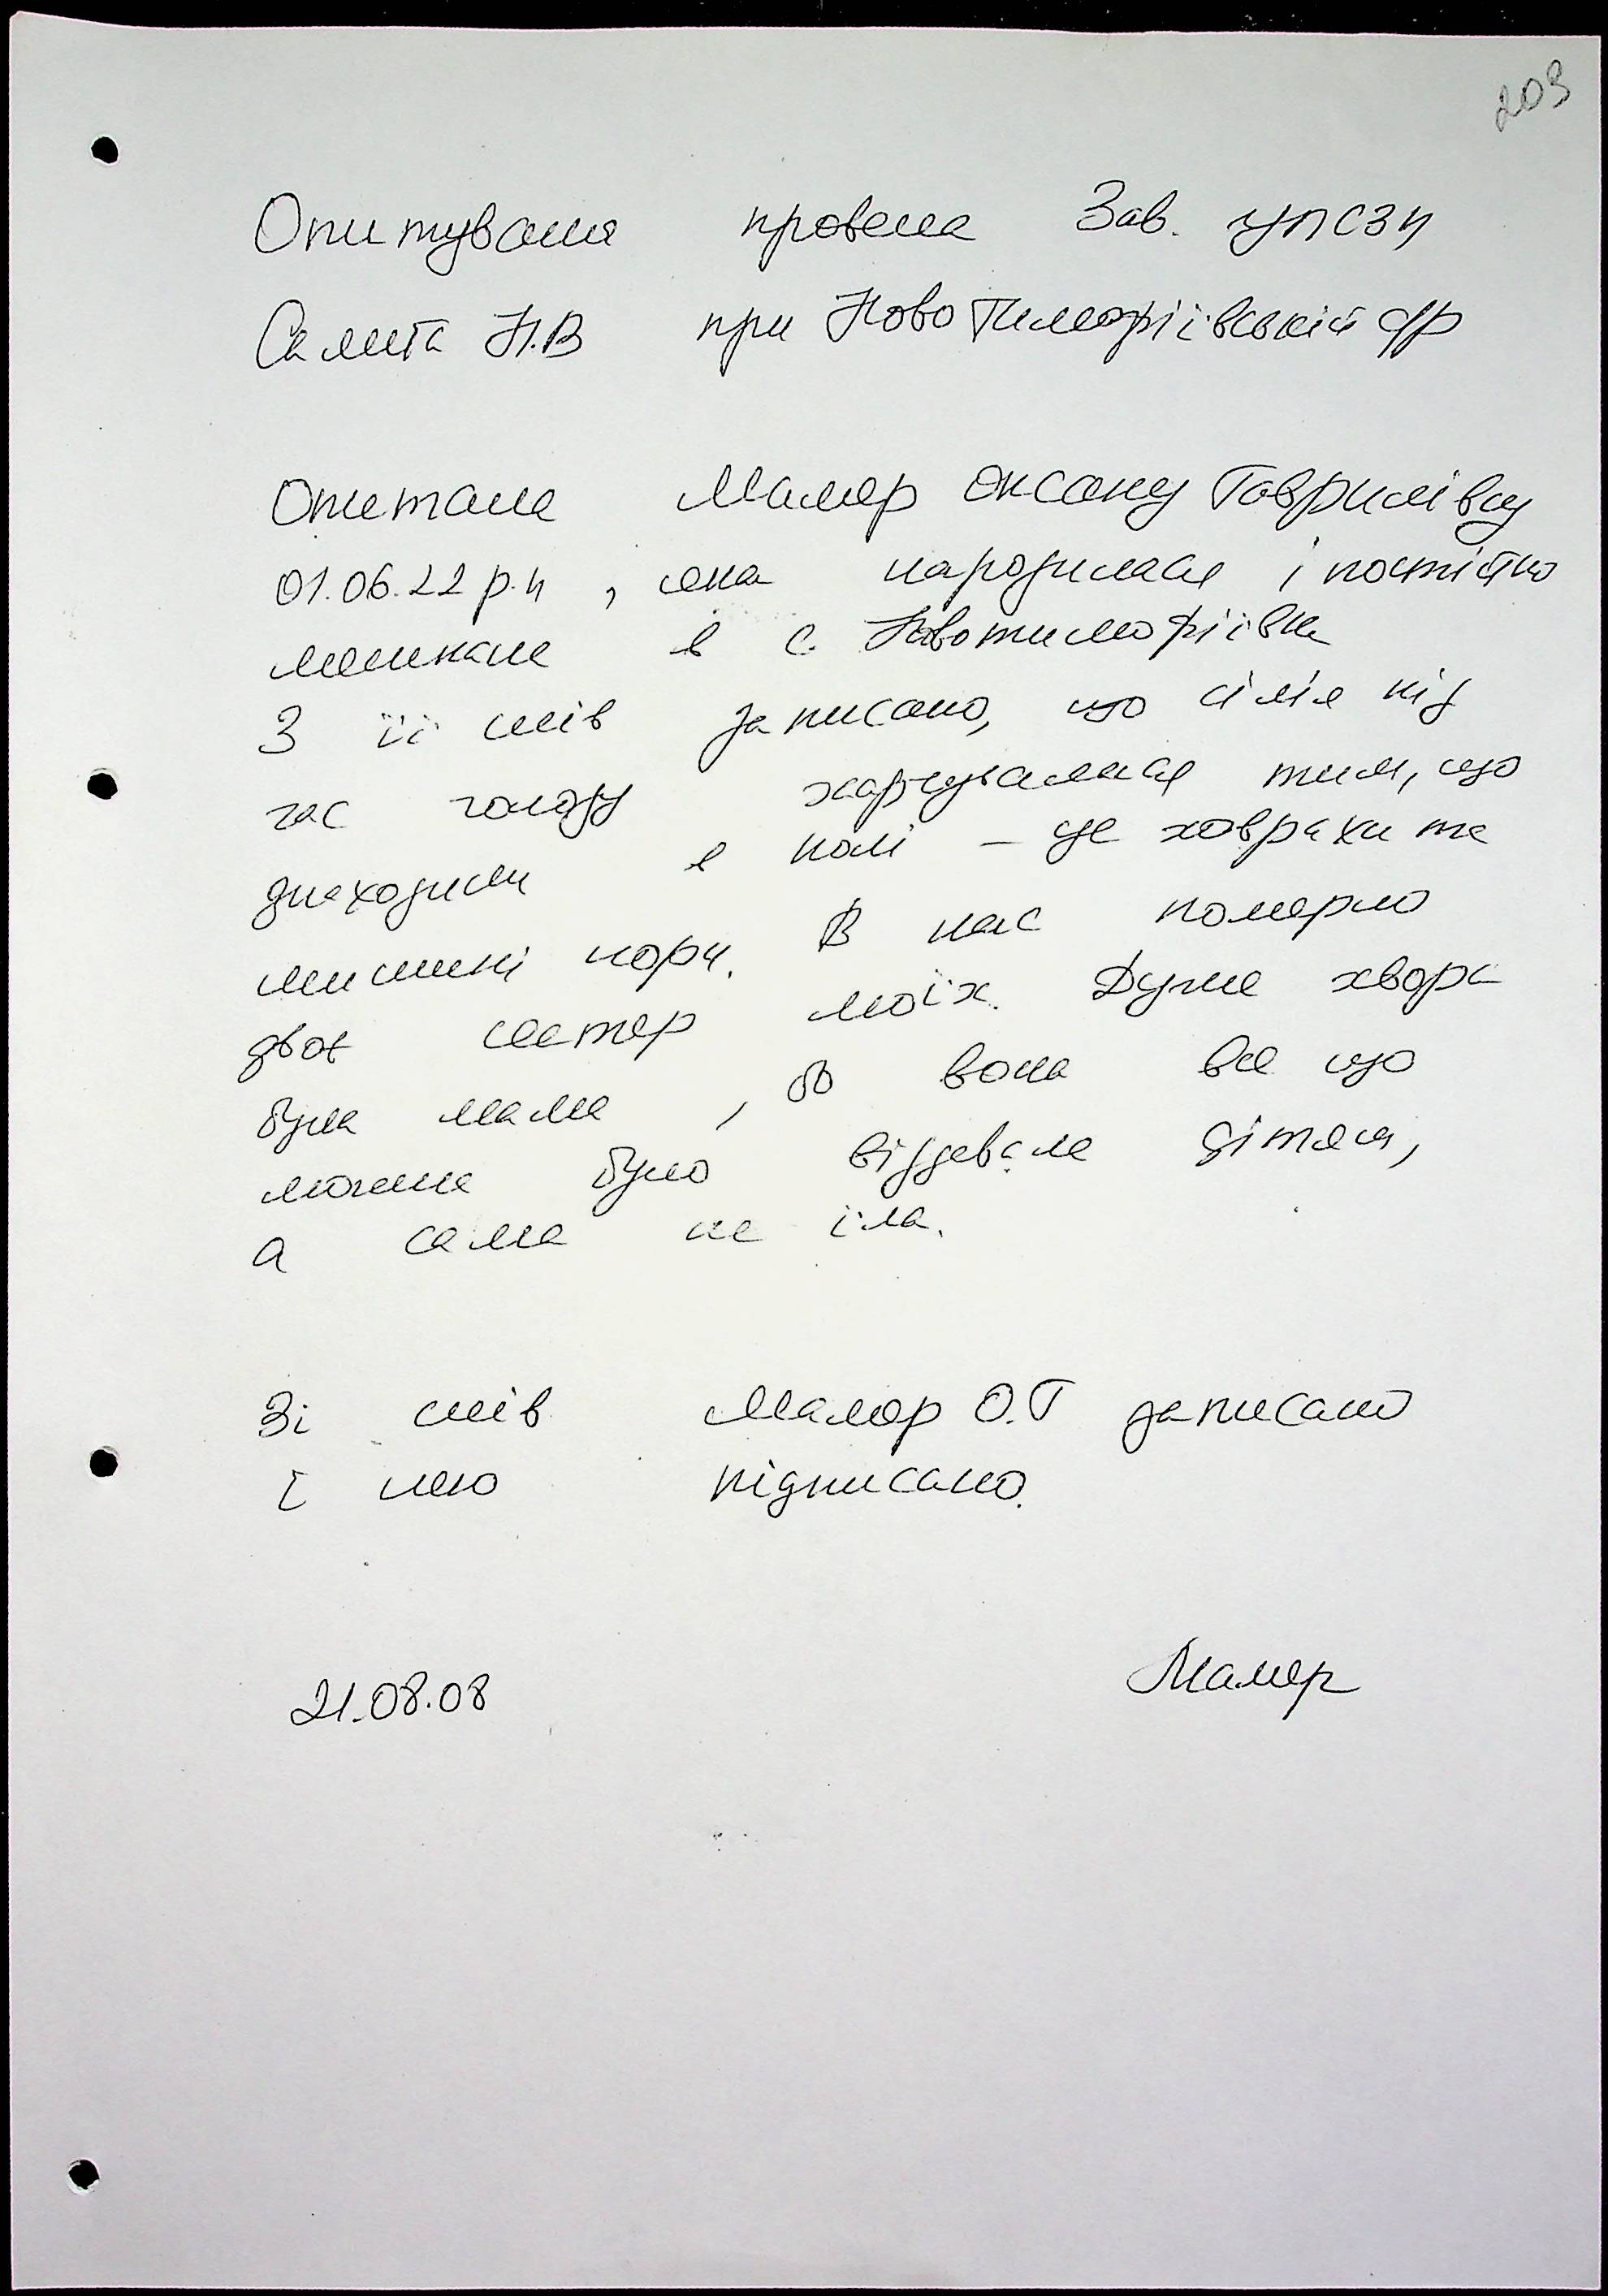 203
Опитування провела Зав. УПСЗН
Саліта Н.В при Ново Тимофіївській с/р
Опитала Маляр Оксану Гаврилівну
01.06.22 р.н, яка народилася і постійно
мешкала в с. Новотимофіївка
З її слів записано, що сім'я під
час голоду харчувалися тим, що
знаходили в полі – це ховрахи та
мишині нори. В нас померло
двоє сестер моїх. Дуже хвора
була мама, бо вона все що
можна було віддавала дітям,
а сама не їла.
Зі слів Маляр О.Г записано
і нею підписано.
21.08.08 Маляр